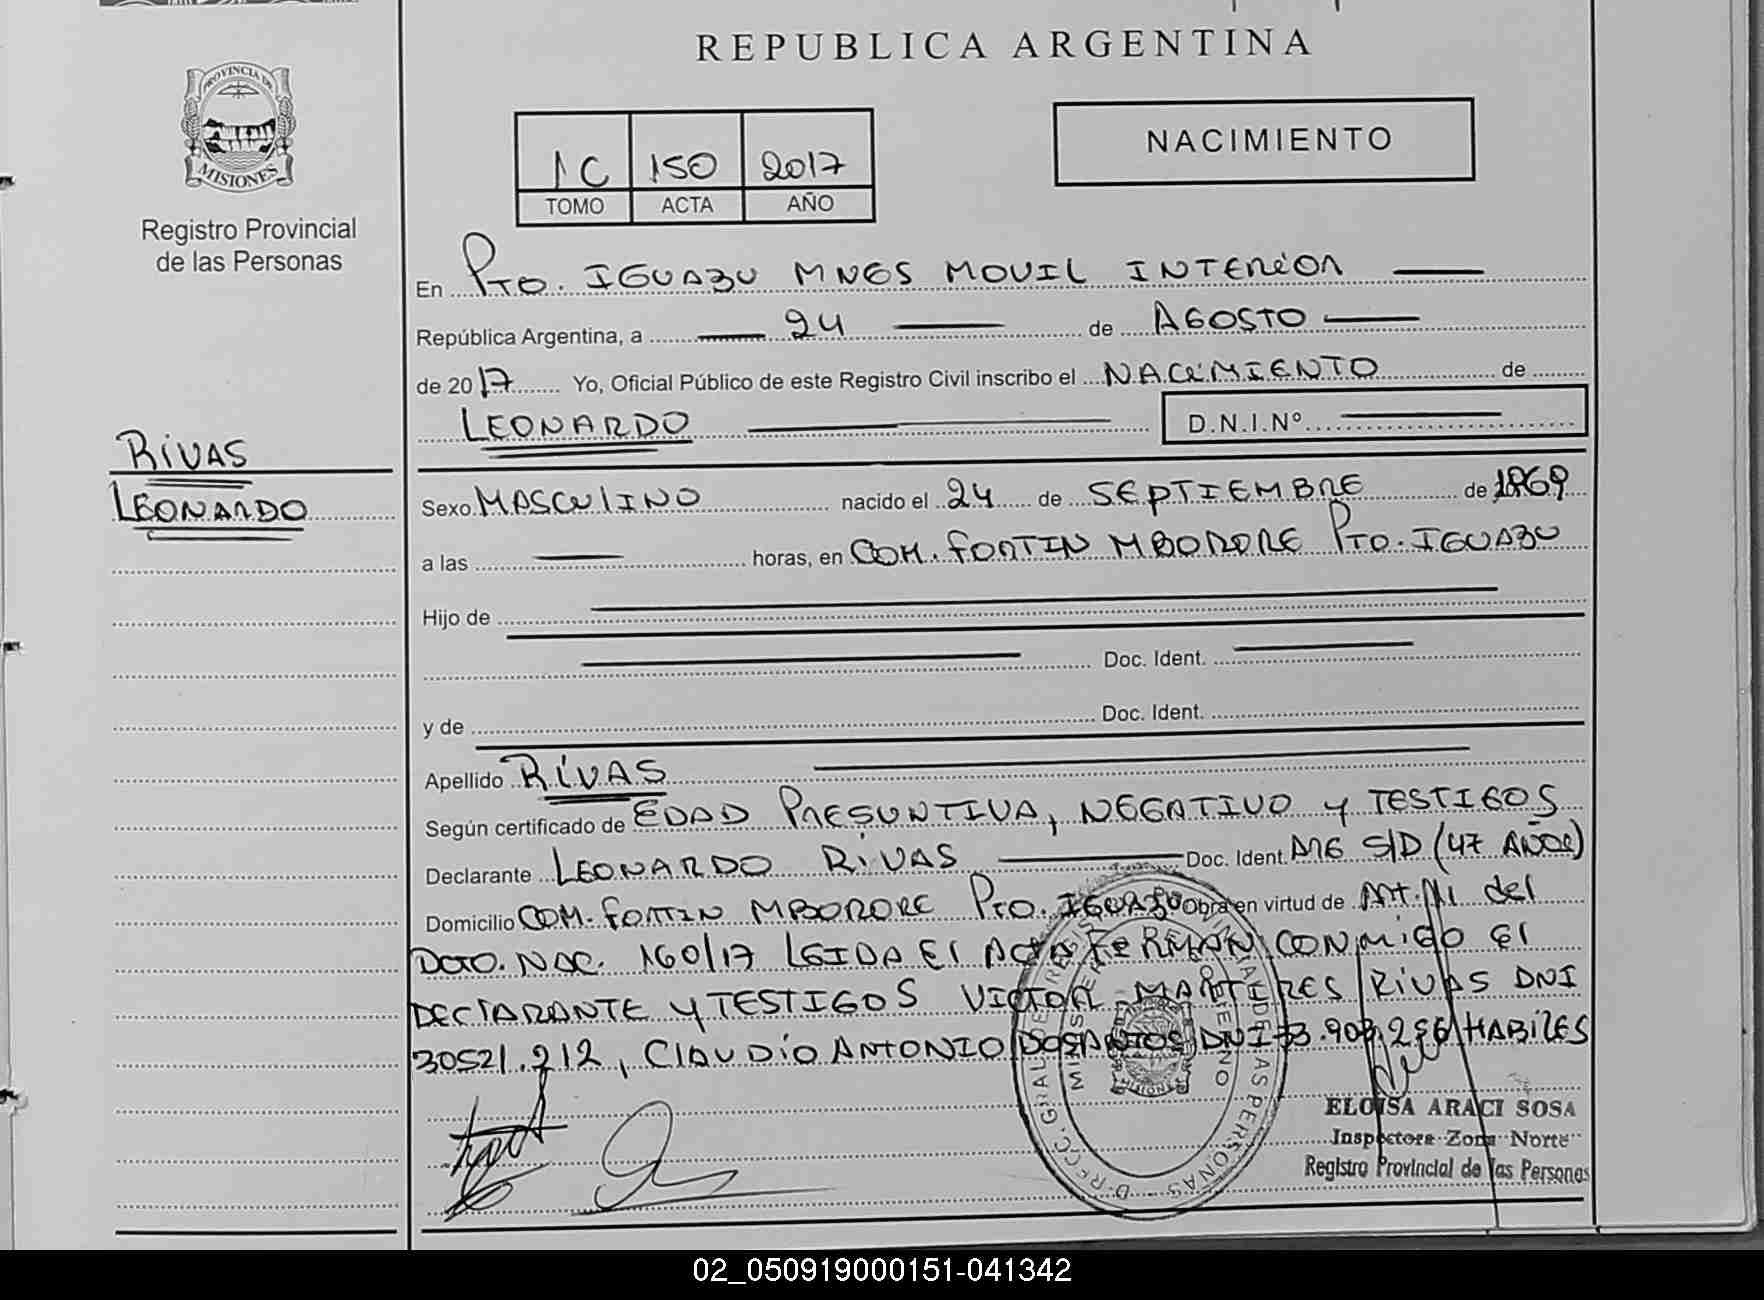 REPUBLICA ARGENTINA
PROVINCIA DE
MISIONES
Registro Provincial
de las Personas
1C 150 2017
TOMO ACTA AÑO
NACIMIENTO
En Pto. IGUAZU MNES MOVIL INTERIOR
República Argentina, a 24 de AGOSTO
de 2017 Yo, Oficial Público de este Registro Civil inscribo el NACIMIENTO de
LEONARDO D.N.I.Nº
RIVAS
LEONARDO
Sexo MASCULINO nacido el 24 de SEPTIEMBRE de 1969
a las horas, en COM. FORTIN MBORORE Pto. IGUAZU
Hijo de
Doc. Ident.
y de Doc. Ident.
Apellido RIVAS
Según certificado de EDAD PRESUNTIVA, NEGATIVO y TESTIGOS
Declarante LEONARDO RIVAS Doc. Ident. ARG S/D (47 AÑOS)
Domicilio COM. FORTIN MBORORE Pto. IGUAZU Obra en virtud de Art. del
Dcto. NAC. 160/17 LEIDA El ACTA FIRMAN CONMIGO El
DEClARANTE y TESTIGOS VICTOR MARTIRES RIVAS DNI
30521.212, ClAUDIO ANTONIO DOSANTOS DNI HABILES
ELOISA ARACI SOSA
Inspectora Zona Norte
Registro Provincial de las Personas
02_050919000151-041342